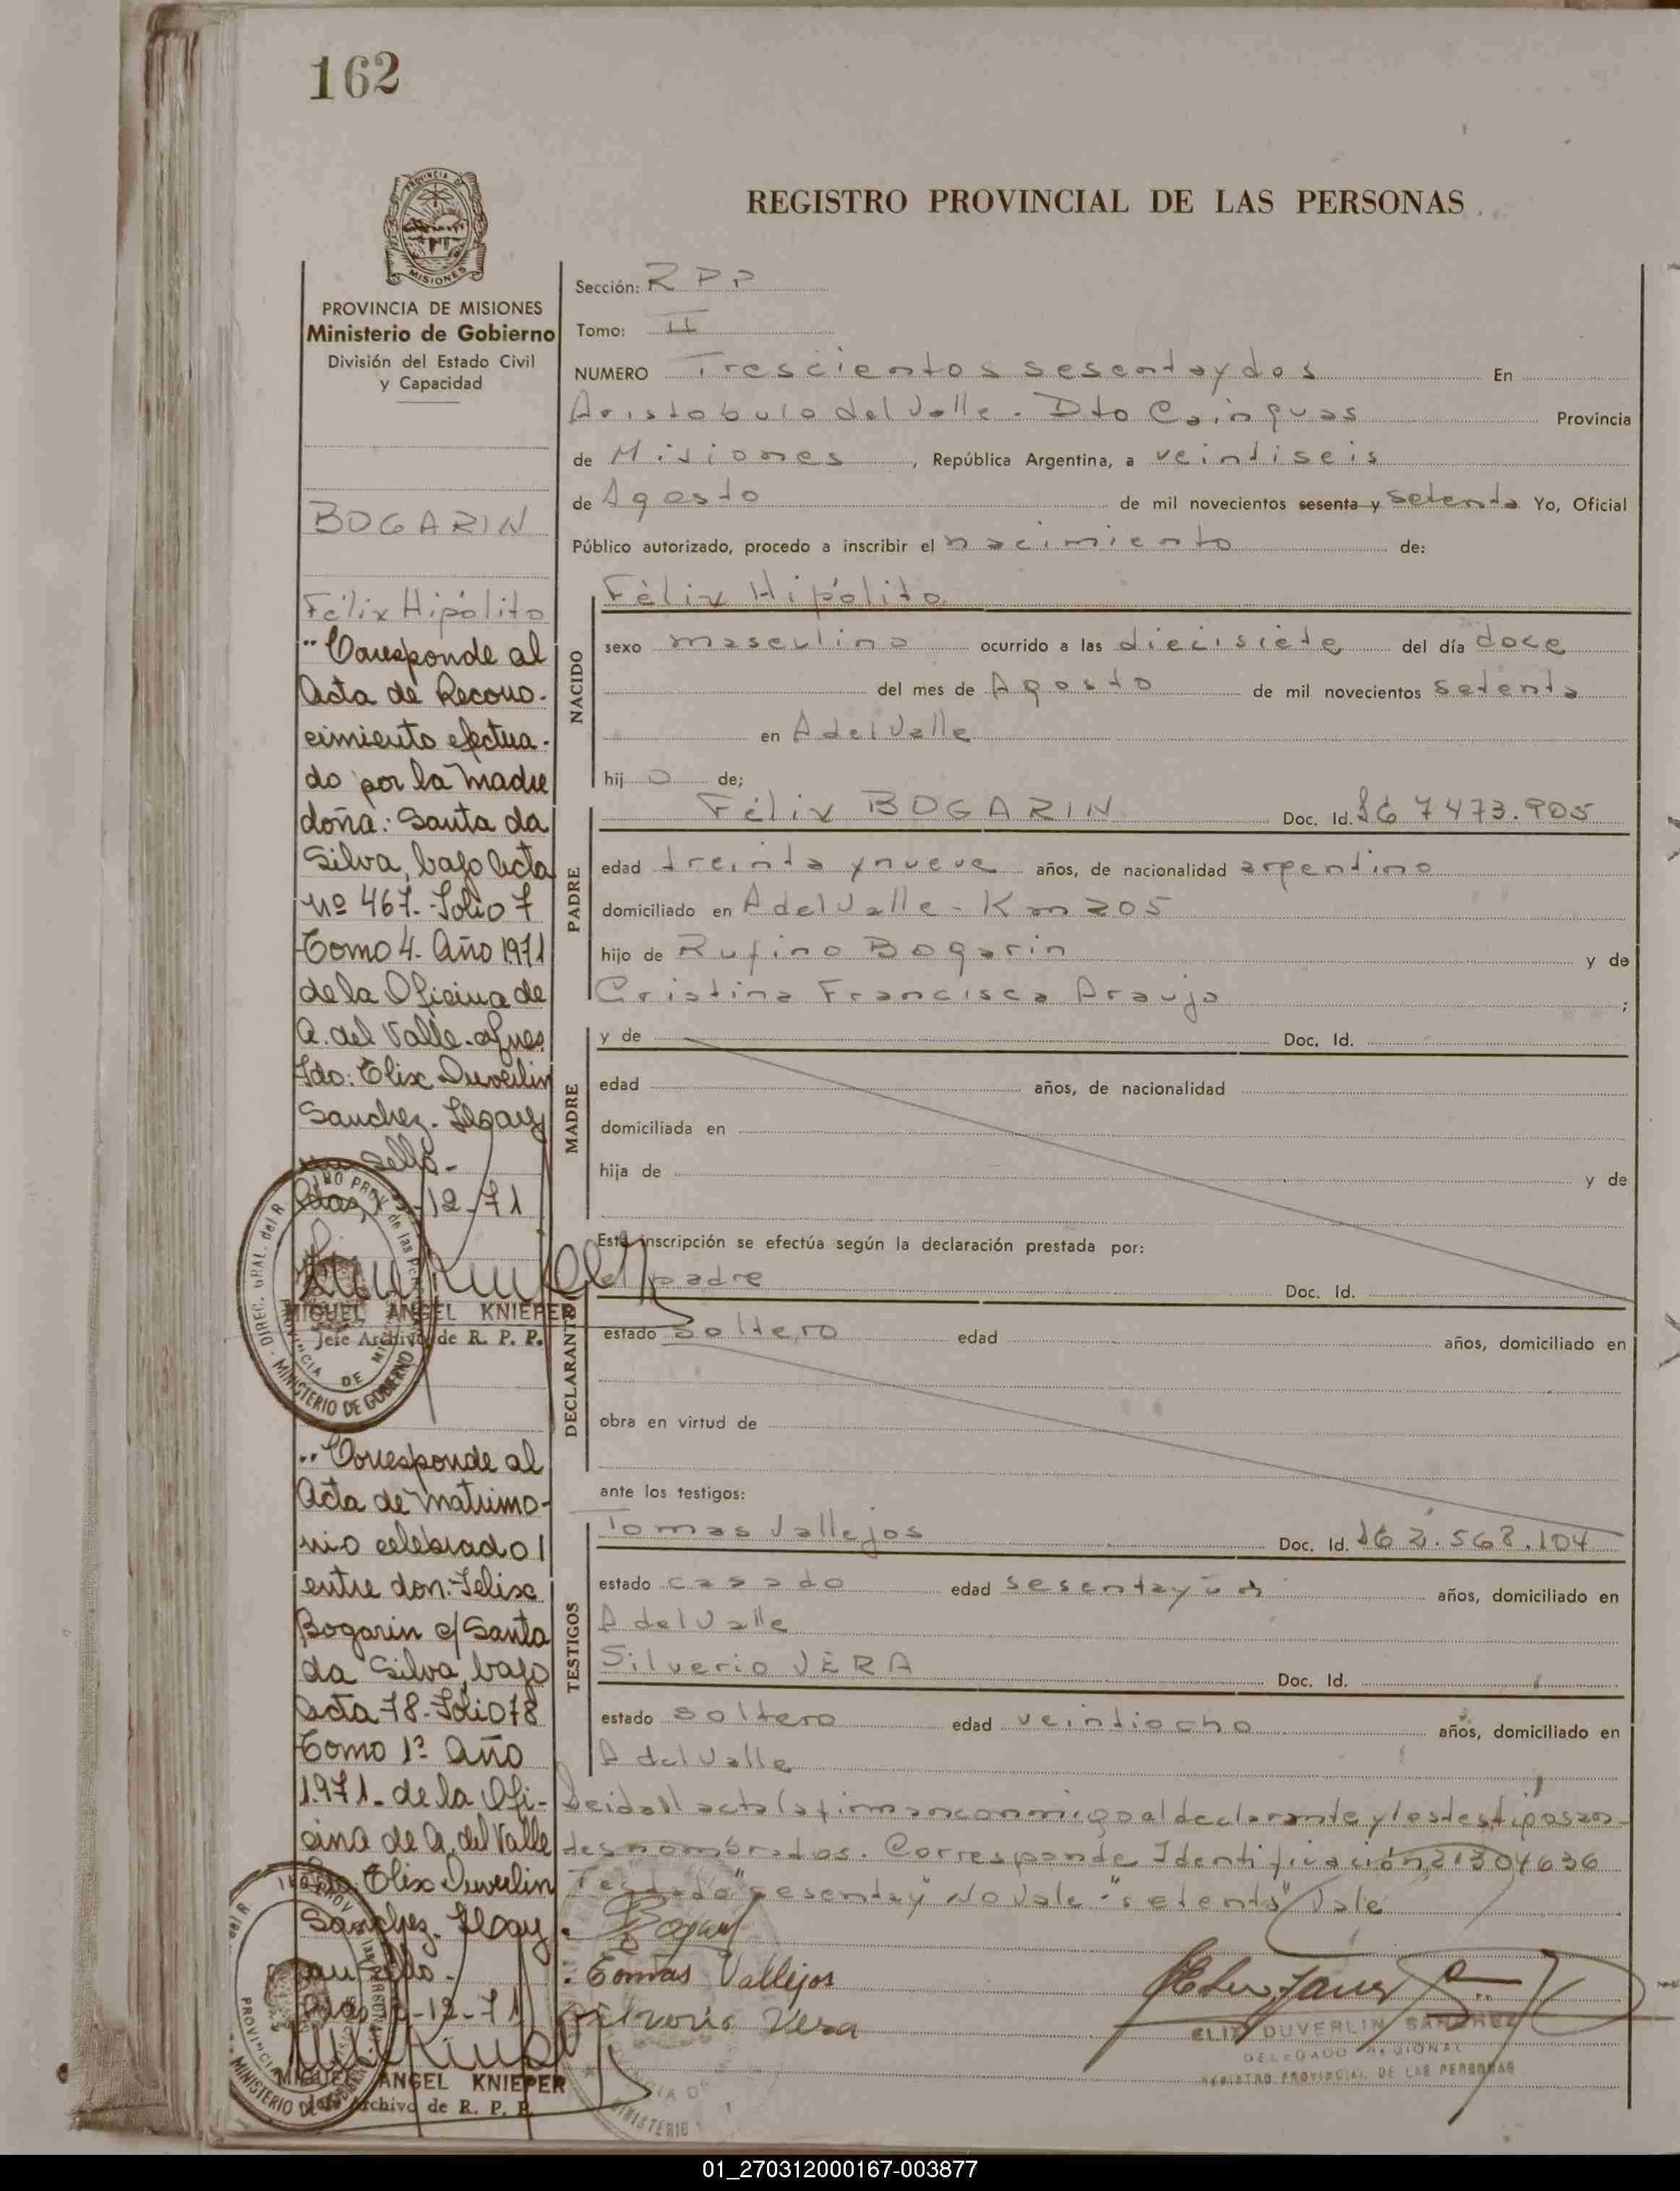 162
REGISTRO PROVINCIAL DE LAS PERSONAS
PROVINCIA DE MISIONES
Ministerio de Gobierno
División del Estado Civil
y Capacidad
BOGARIN
Félix Hipólito
"Corresponde al
Acta de Recono-
cimiento efectua-
do por la madre
doña: Santa da
Silva, bajo acta
Nº 467- Folio 7
Tomo 4- Año 1971
de la Oficina de
A. del Valle-
Fdo: Elix Duverlin
Sanchez- Hay
un sello-
-12-71
MIGUEL ANGEL KNIEPER
Jefe Archivo de R. P. P.
"Corresponde al
Acta de Matrimo-
nio celebrado
entre don: Felix
Bogarin c/ Santa
da Silva, bajo
acta 78- Folio 78
Tomo 1º Año
1.971- de la Ofi-
cina de A. del Valle
Elix Duverlin
Sanchez- Hay
un sello-
-12-71
MIGUEL ANGEL KNIEPER
Jefe Archivo de R. P. P.
Sección: RPP
Tomo: II
NUMERO Trescientos sesenta y dos En
Aristobulo del Valle - Dto Cainguas Provincia
de Misiones, República Argentina, a veintiseis
de Agosto de mil novecientos sesenta y setenta Yo, Oficial
Público autorizado, procedo a inscribir el nacimiento de:
NACIDO
Félix Hipólito
sexo masculino ocurrido a las diecisiete del día doce
del mes de Agosto de mil novecientos setenta
en A del Valle
hij o de;
PADRE
Félix BOGARIN Doc. Id. 7473.905
edad treinta y nueve años, de nacionalidad argentino
domiciliado en A del Valle - Km 205
hijo de Rufino Bogarin y de
Cristina Francisca Araujo ;
MADRE
y de Doc. Id.
edad años, de nacionalidad
domiciliada en
hija de y de
DECLARANTE
Esta inscripción se efectúa según la declaración prestada por:
el padre Doc. Id.
estado soltero edad años, domiciliado en
obra en virtud de
ante los testigos:
TESTIGOS
Tomas Vallejos Doc. Id. 2.568.104
estado casado edad sesenta y un años, domiciliado en
A del Valle
Silverio VERA Doc. Id.
estado soltero edad veintiocho años, domiciliado en
A del Valle
Leida el acta la firman conmigo el declarante y los testigos an-
tes nombrados. Corresponde Identificación 21304636
Testado "sesenta y" No Vale - "setenta" Vale
Tomas Vallejos
Silverio Vera
ELIX DUVERLIN SANCHEZ
DELEGADO REGIONAL
REGISTRO PROVINCIAL DE LAS PERSONAS
01_270312000167-003877